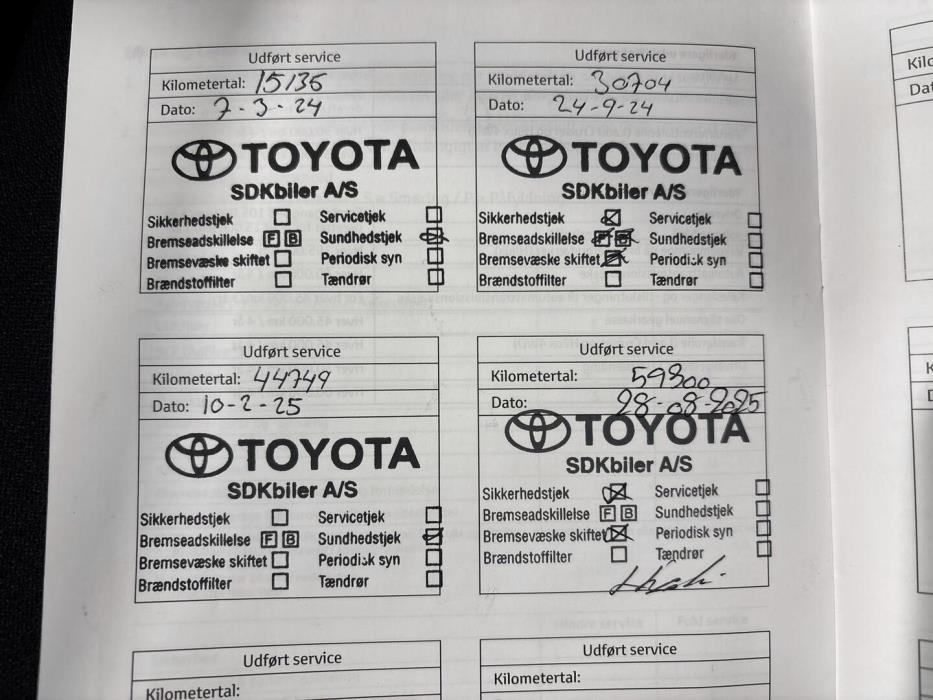 Udført service
Kilometertal: 15136
Dato: 7-3-24
TOYOTA
SDKbiler A/S
Sikkerhedstjek Servicetjek
Bremseadskillelse F B Sundhedstjek
Bremsevæske skiftet Periodisk syn
Brændstoffilter Tændrør
Udført service
Kilometertal: 30704
Dato: 24-9-24
TOYOTA
SDKbiler A/S
Sikkerhedstjek Servicetjek
Bremseadskillelse F B Sundhedstjek
Bremsevæske skiftet Periodisk syn
Brændstoffilter Tændrør
Udført service
Kilometertal: 44749
Dato: 10-2-25
TOYOTA
SDKbiler A/S
Sikkerhedstjek Servicetjek
Bremseadskillelse F B Sundhedstjek
Bremsevæske skiftet Periodisk syn
Brændstoffilter Tændrør
Udført service
Kilometertal: 59300
Dato: 28-08-2025
TOYOTA
SDKbiler A/S
Sikkerhedstjek Servicetjek
Bremseadskillelse F B Sundhedstjek
Bremsevæske skiftet Periodisk syn
Brændstoffilter Tændrør
Udført service
Kilometertal:
Udført service
Kilometertal: